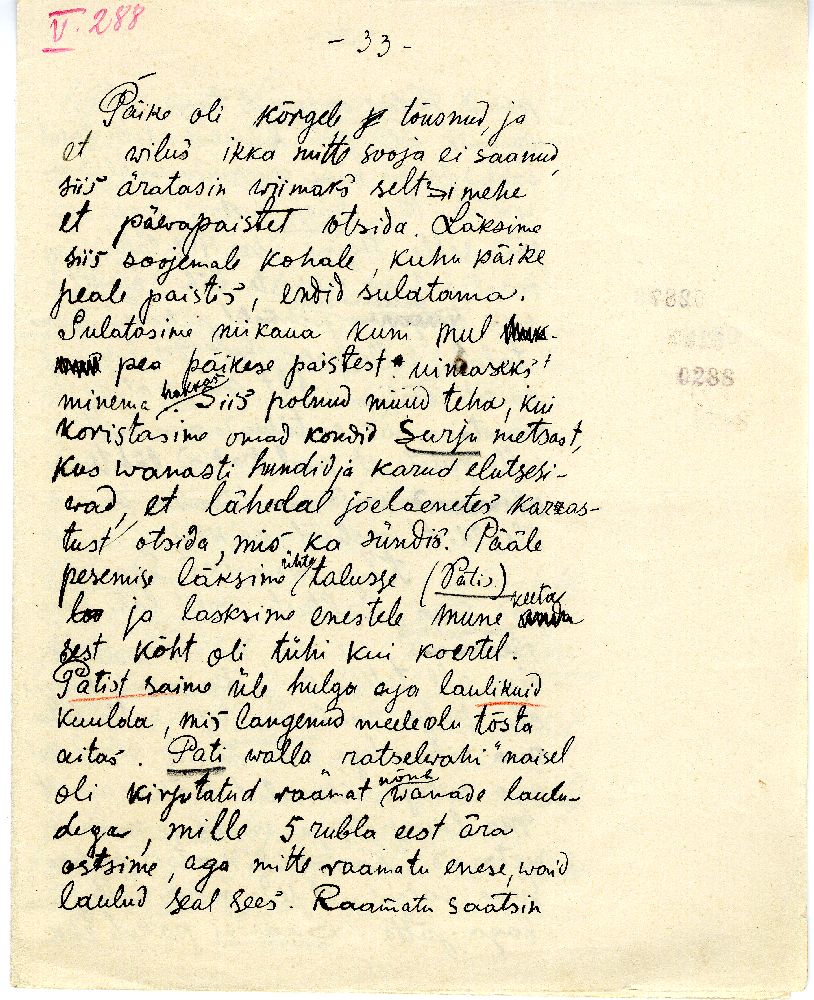 V. 288
- 33 -
Päike oli kõrgele tõusnud, ja
et wilus ikka mitte sooja ei saanud,
siis äratasin wiimaks seltsimehe
et päewapaistet otsida. Läksime
siis soojemale kohale, kuhu päike
peale paistis, endid sulatama.
Sulatasime niikaua kuni mul
pea päikese paistest uimaseks
minema hakkas. Siis polnud muud teha, kui
koristasime omad kondid Surju metsast,
kus wanasti hundid ja karud elutsesi-
wad, et lähedal jõelaenetes karras-
tust otsida, mis ka sündis. Pääle
pesemise läksime ühte talusse (Pätis)
ja lasksime enestele mune keeta
sest kõht oli tühi kui koertel.
Patist saime üle hulga aja laulikuid
kuulda, mis langenud meeleolu tõsta
aitas. Pati walla "ratselwahi" naisel
oli kirjutatud raamat mõne wanade laulu-
dega, mille 5 rubla eest ära
ostsime, aga mitte raamatu enese, waid
laulud seal sees. Raamatu saatsin
0288